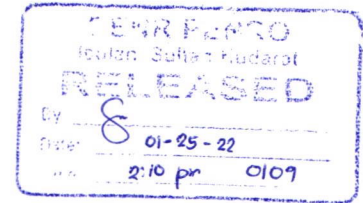 DENR PENRO
Isulan Sultan Kudarat
RELEASED
By
Date: 01-25-22
2:10 pm 0109